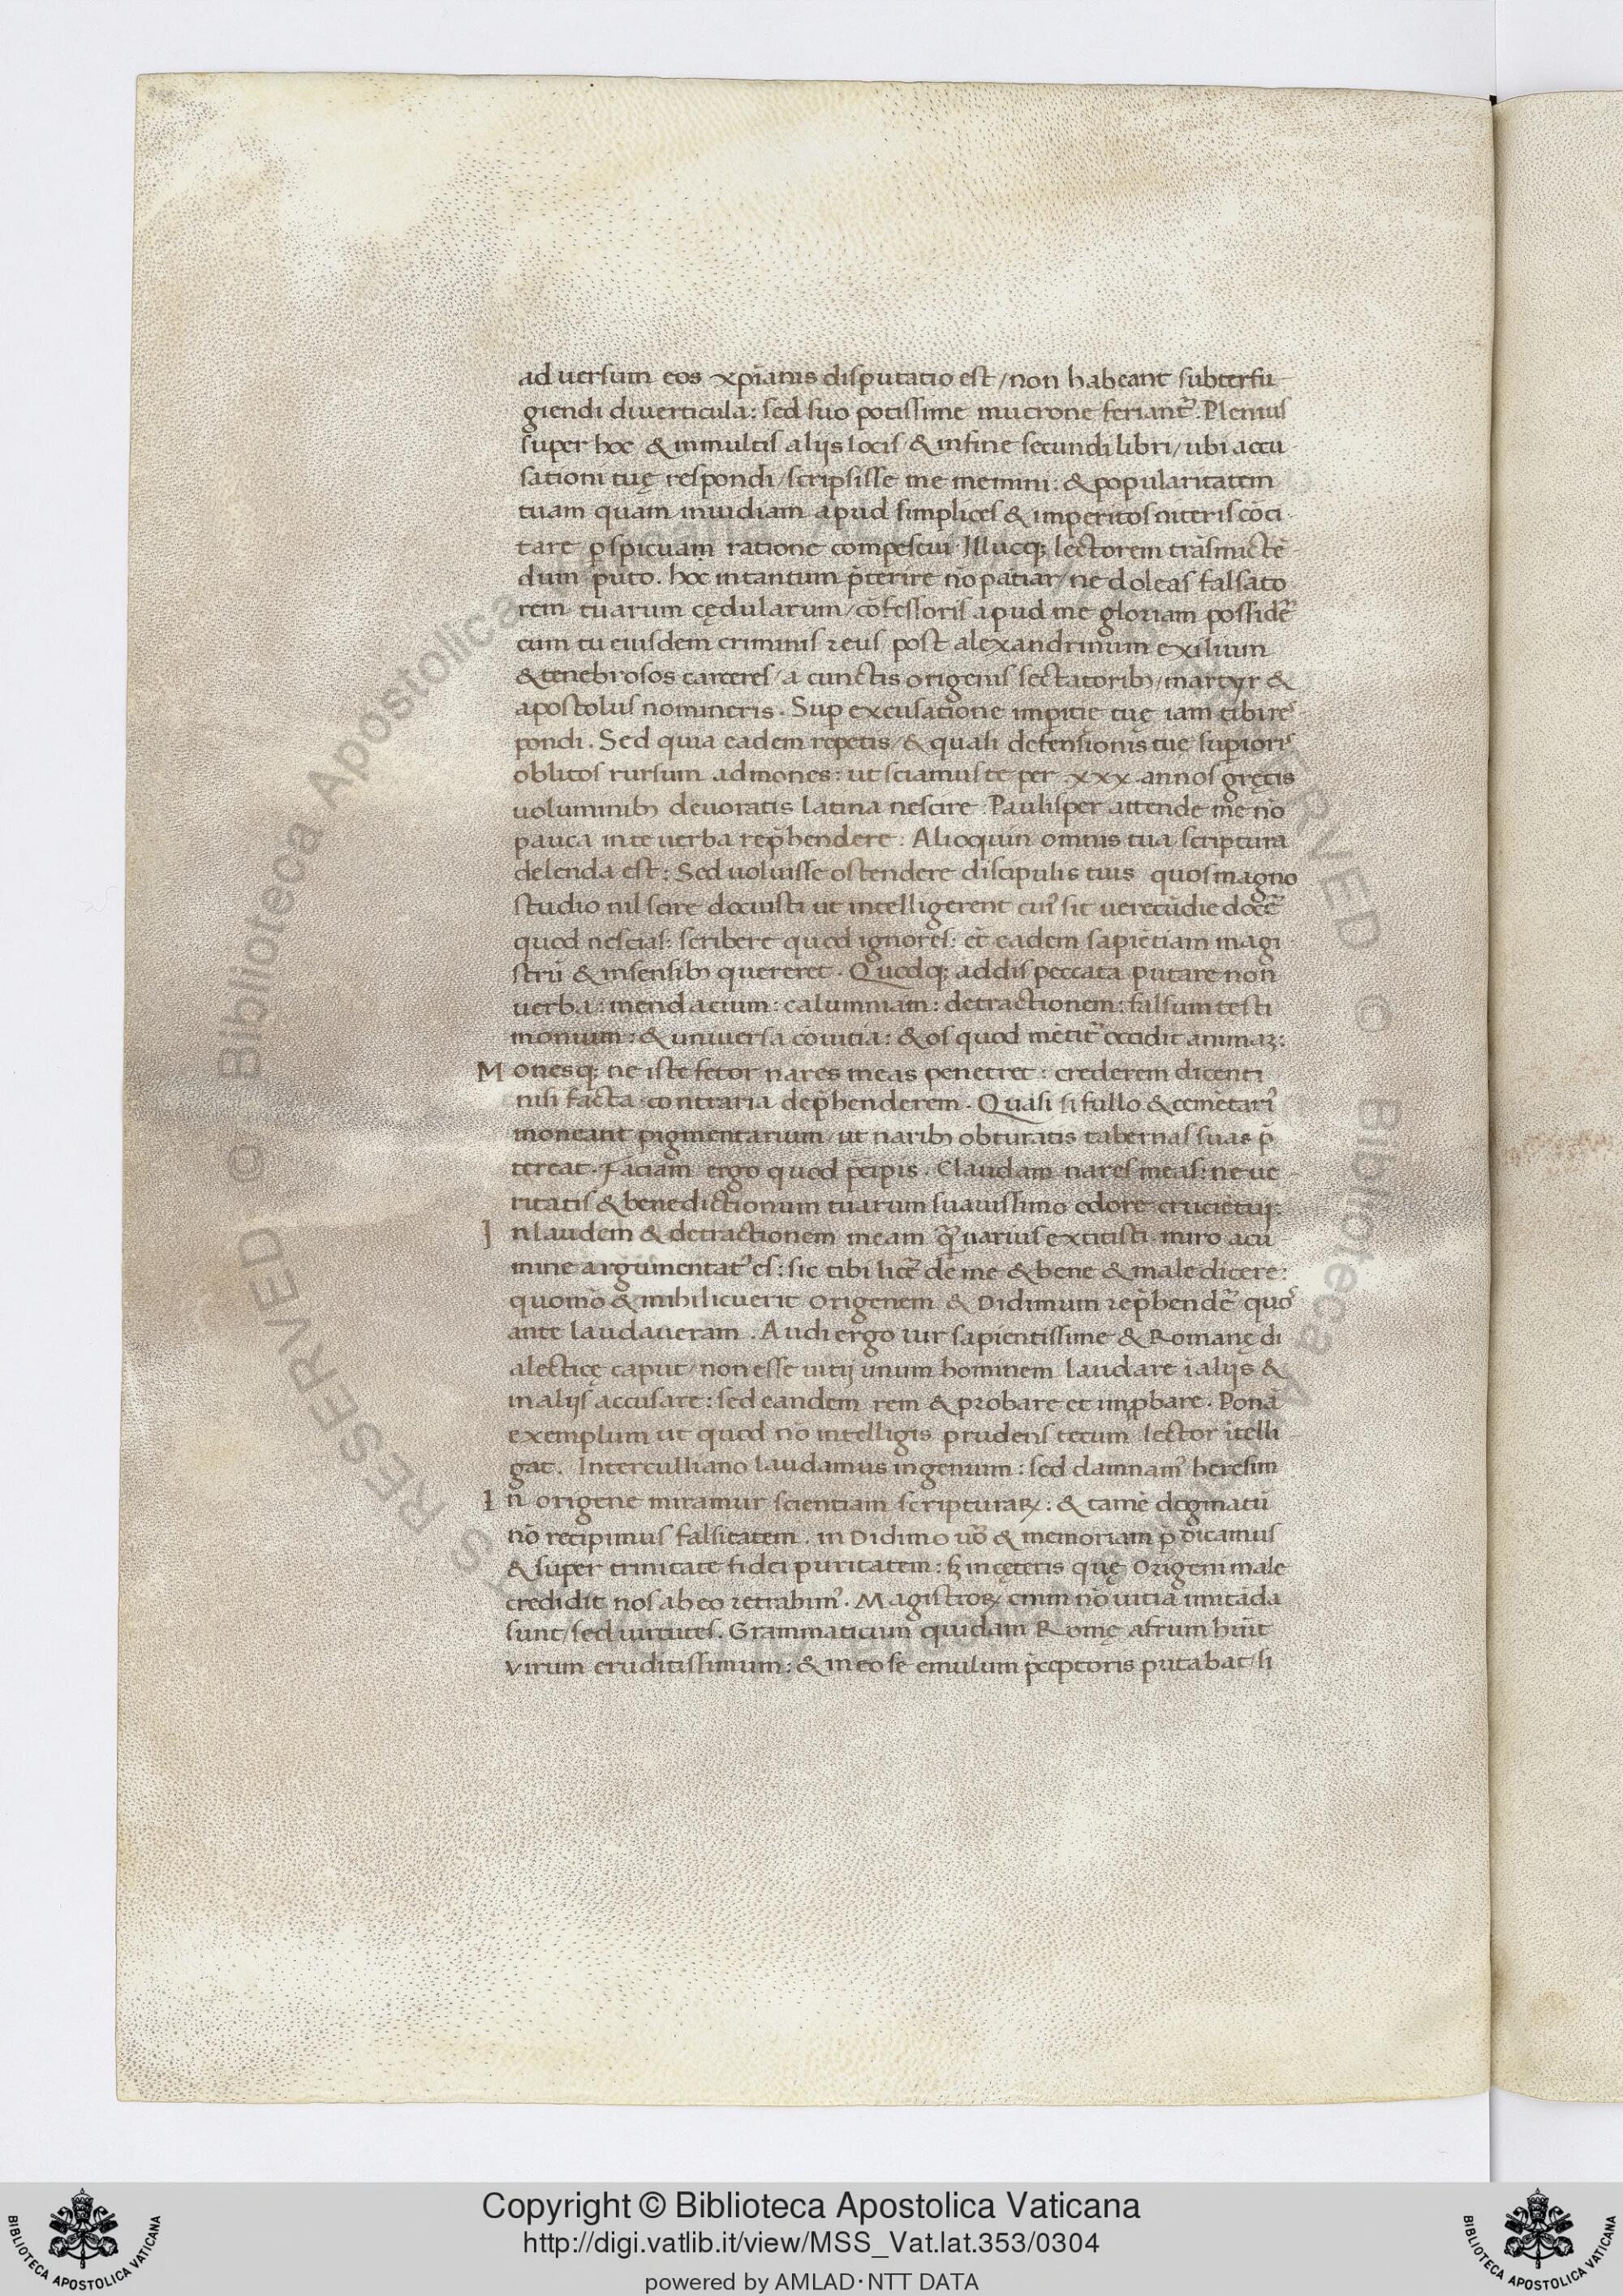 aduersum eos xp̄ianis disputatio est/non habeant subterfu
giendi diuerticula: sed suo potissime mucrone feriant᷑. Plenius
super hoc & inmultis aliis locis/& infine secundi libri/ubi accu
sationi tuę respondi/scripsisse me memini: & popularitatem
tuam quam inuidiam apud simplices & imperitos niteris cōci
tare p̱spicuam ratione compescui. Illucq; lectorem trāsmictē
dum puto. hoc intantum p̄terire nō patiar/ne doleas falsato
rem tuarum cędularum/cōfessoris apud me gloriam possidē
cum tu eiusdem criminis reus post alexandrinum exilium
& tenebrosos carceres/a cunctis origenis sectatorib;/martyr &
apostolus nomineris. Sup̱ excusatione imp̱itie tuę iam tibi res
pondi. Sed quia eadem repetis/& quasi defensionis tuę sup̱ioris
oblitos rursum admones: ut sciamus te per .xxx. annos gręcis
uoluminib; deuoratis latina nescire. Paulisper attende me nō
pauca inte uerba rep̄hendere. Alioquin omnis tua scriptura
delenda est: Sed uoluisse ostendere discipulis tuis quos magno
studio nil scire docuisti ut intelligerent cui᾽ sit uerecūdie docē
quod nescias: scribere quod ignores: et eadem sapiētiam magi
strū & insensib; quereret. Quodq; addis peccata putare non
uerba: mendacium: calumniam: detractionem: falsum testi
monium: & uniuersa conuitia: & os quod mētit᷑ occidit animaꝫ:
Monesq; ne iste fetor nares meas penetret: crederem dicenti
nisi facta contraria dep̄henderem. Quasi si fullo & cemetari᾽
moneant pigmentarium/ut narib; obturatis tabernas suas p̄
tereat. Faciam ergo quod p̄cipis. Claudam nares meas: ne ue
ritatis & benedictionum tuarum suauissimo odore cruciētur:
In laudem & detractionem meam q̄ uarius extitisti miro acu
mine argumentat᾽ es: sic tibi licē de me & bene & male dicere:
quomō & mihi licuerit origenem & Didimum rep̄hendē quos
ante laudaueram. Audi ergo uir sapientissime & Romanę di
alecticę caput/non esse uitij unum hominem laudare ī aliis &
in aliis accusare: sed eandem rem & probare et imp̱bare. Ponā
exemplum ut quod nō intelligis prudens tecum lector ītelli
gat. Intertulliano laudamus ingenium: sed damnam᾽ heresim
In origene miramur scientiam scripturaꝝ: & tamē dogmatū
nō recipimus falsitatem. in Didimo uō & memoriam p̄dicamus
& super trinitate fidei puritatem: sꝫ inceteris quę Origeni male
credidit nos ab eo retrahim᾽. Magistroꝝ enim nō uitia imitāda
sunt/sed uirtutes. Grammaticum quidam Romę afrum hūit
virum eruditissimum: & in eo se emulum p̄ceptoris putabat/si
Copyright © Biblioteca Apostolica Vaticana
http://digi.vatlib.it/view/MSS_Vat.lat.353/0304
powered by AMLAD·NTT DATA